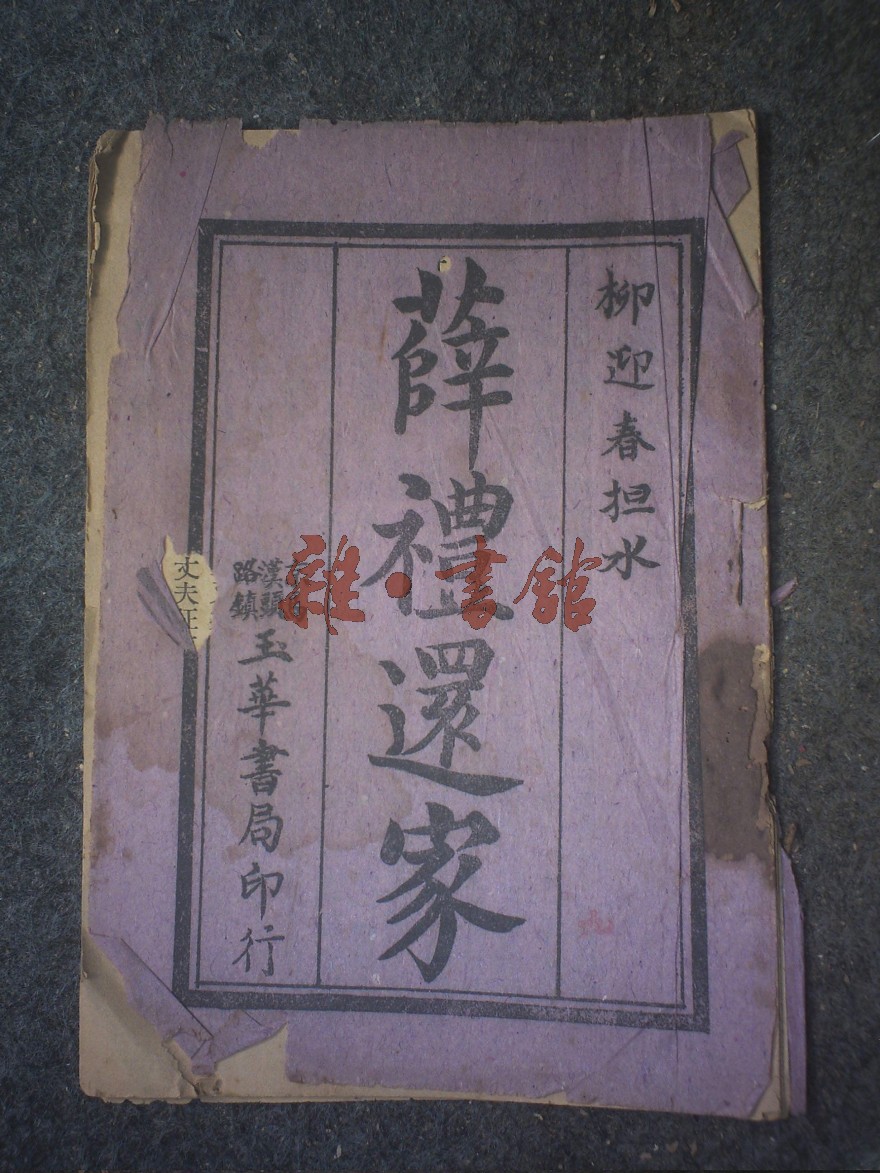 柳迎春担水
薛禮還家
漢鎮
路
玉華書局印行
丈夫征
雜·書館